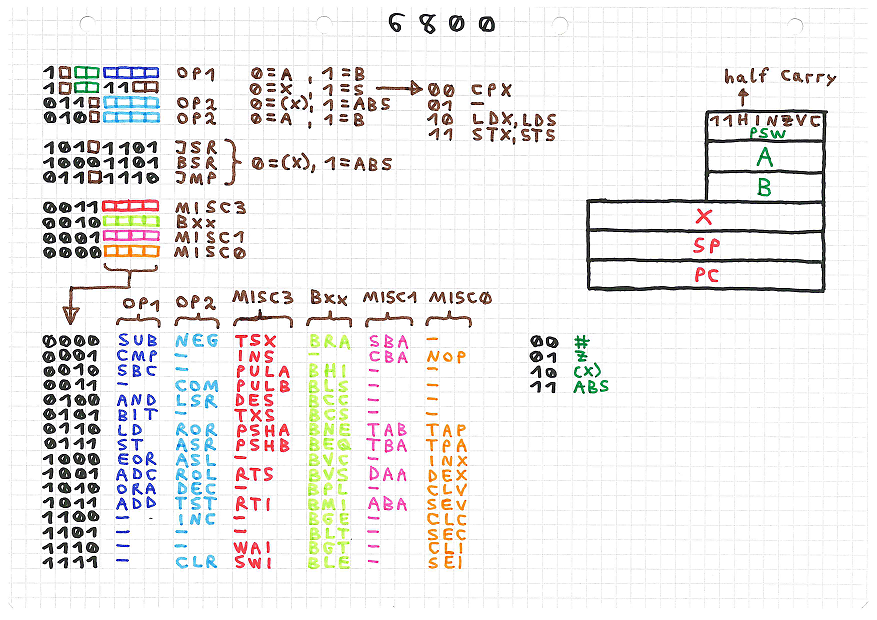 6800
1□□□□□□□ OP1 0=A, 1=B
1□□□11□□ 0=X, 1=S → 00 CPX
011□□□□□ OP2 0=(X), 1=ABS 01 –
010□□□□□ OP2 0=A, 1=B 10 LDX, LDS
11 STX, STS
101□1101 JSR
10001101 BSR } 0=(X), 1=ABS
011□1110 JMP
0011□□□□ MISC3
0010□□□□ BXX
0001□□□□ MISC1
0000□□□□ MISC0
half carry
11HINZVC
PSW
A
B
X
SP
PC
OP1 OP2 MISC3 BXX MISC1 MISC0
0000 SUB NEG TSX BRA SBA –
0001 CMP – INS – CBA NOP
0010 SBC – PULA BHI – –
0011 – COM PULB BLS – –
0100 AND LSR DES BCC – –
0101 BIT – TXS BCS – –
0110 LD ROR PSHA BNE TAB TAP
0111 ST ASR PSHB BEQ TBA TPA
1000 EOR ASL – BVC – INX
1001 ADC ROL RTS BVS DAA DEX
1010 ORA DEC – BPL – CLV
1011 ADD TST RTI BMI ABA SEV
1100 – INC – BGE – CLC
1101 – – – BLT – SEC
1110 – – WAI BGT – CLI
1111 – CLR SWI BLE – SEI
00 #
01 Z
10 (X)
11 ABS